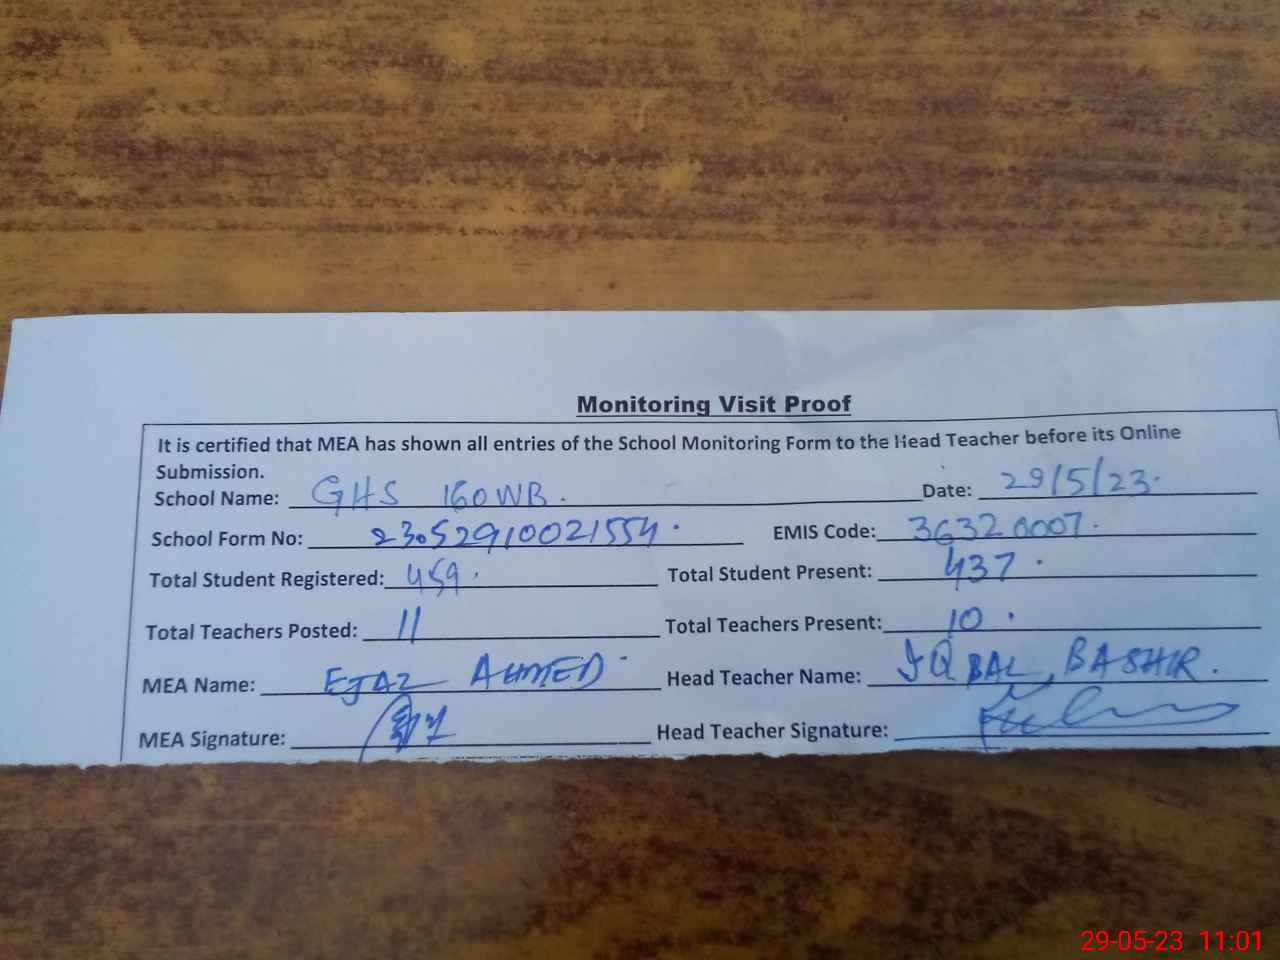 Monitoring Visit Proof
It is certified that MEA has shown all entries of the School Monitoring Form to the Head Teacher before its Online
Submission.
School Name: GHS 160 WB. Date: 29/5/23.
School Form No: 23052910021554. EMIS Code: 36320007.
Total Student Registered: 459. Total Student Present: 437.
Total Teachers Posted: 11 Total Teachers Present: 10.
MEA Name: EJAZ AHMED Head Teacher Name: IQBAL BASHIR.
MEA Signature: Head Teacher Signature:
29-05-23 11:01